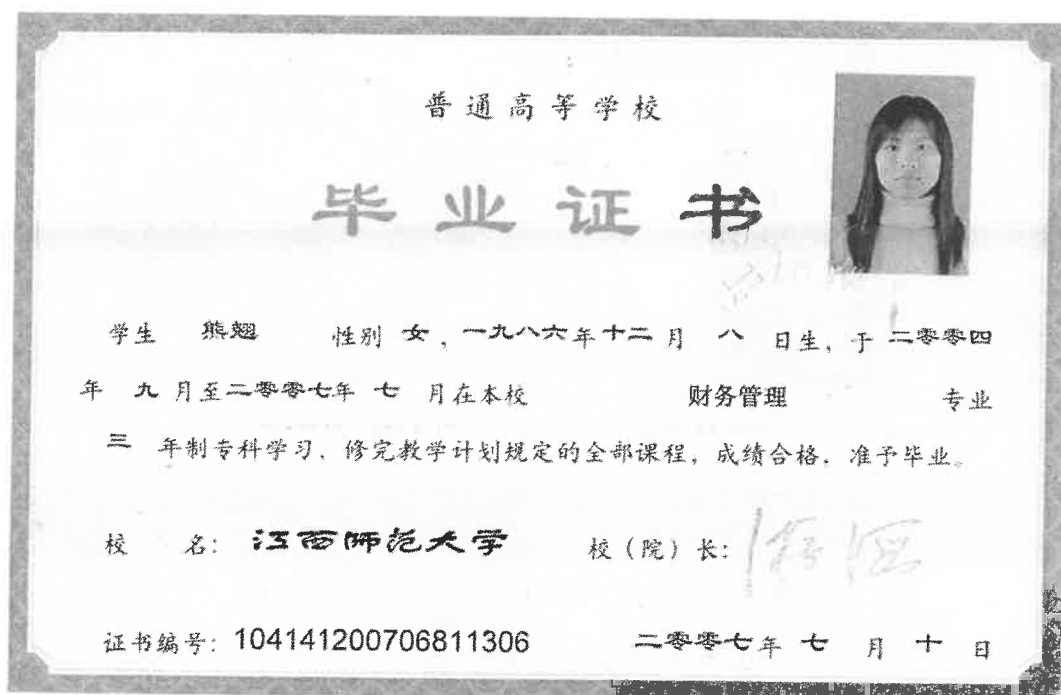 普通高等学校
毕业证书
学生 熊翘 性别 女，一九八六年十二月 八 日生，于 二零零四
年 九 月至二零零七年 七 月在本校 财务管理 专业
三 年制专科学习，修完教学计划规定的全部课程，成绩合格，准予毕业。
校 名：江西师范大学 校（院）长：
证书编号：104141200706811306 二零零七年 七 月 十 日